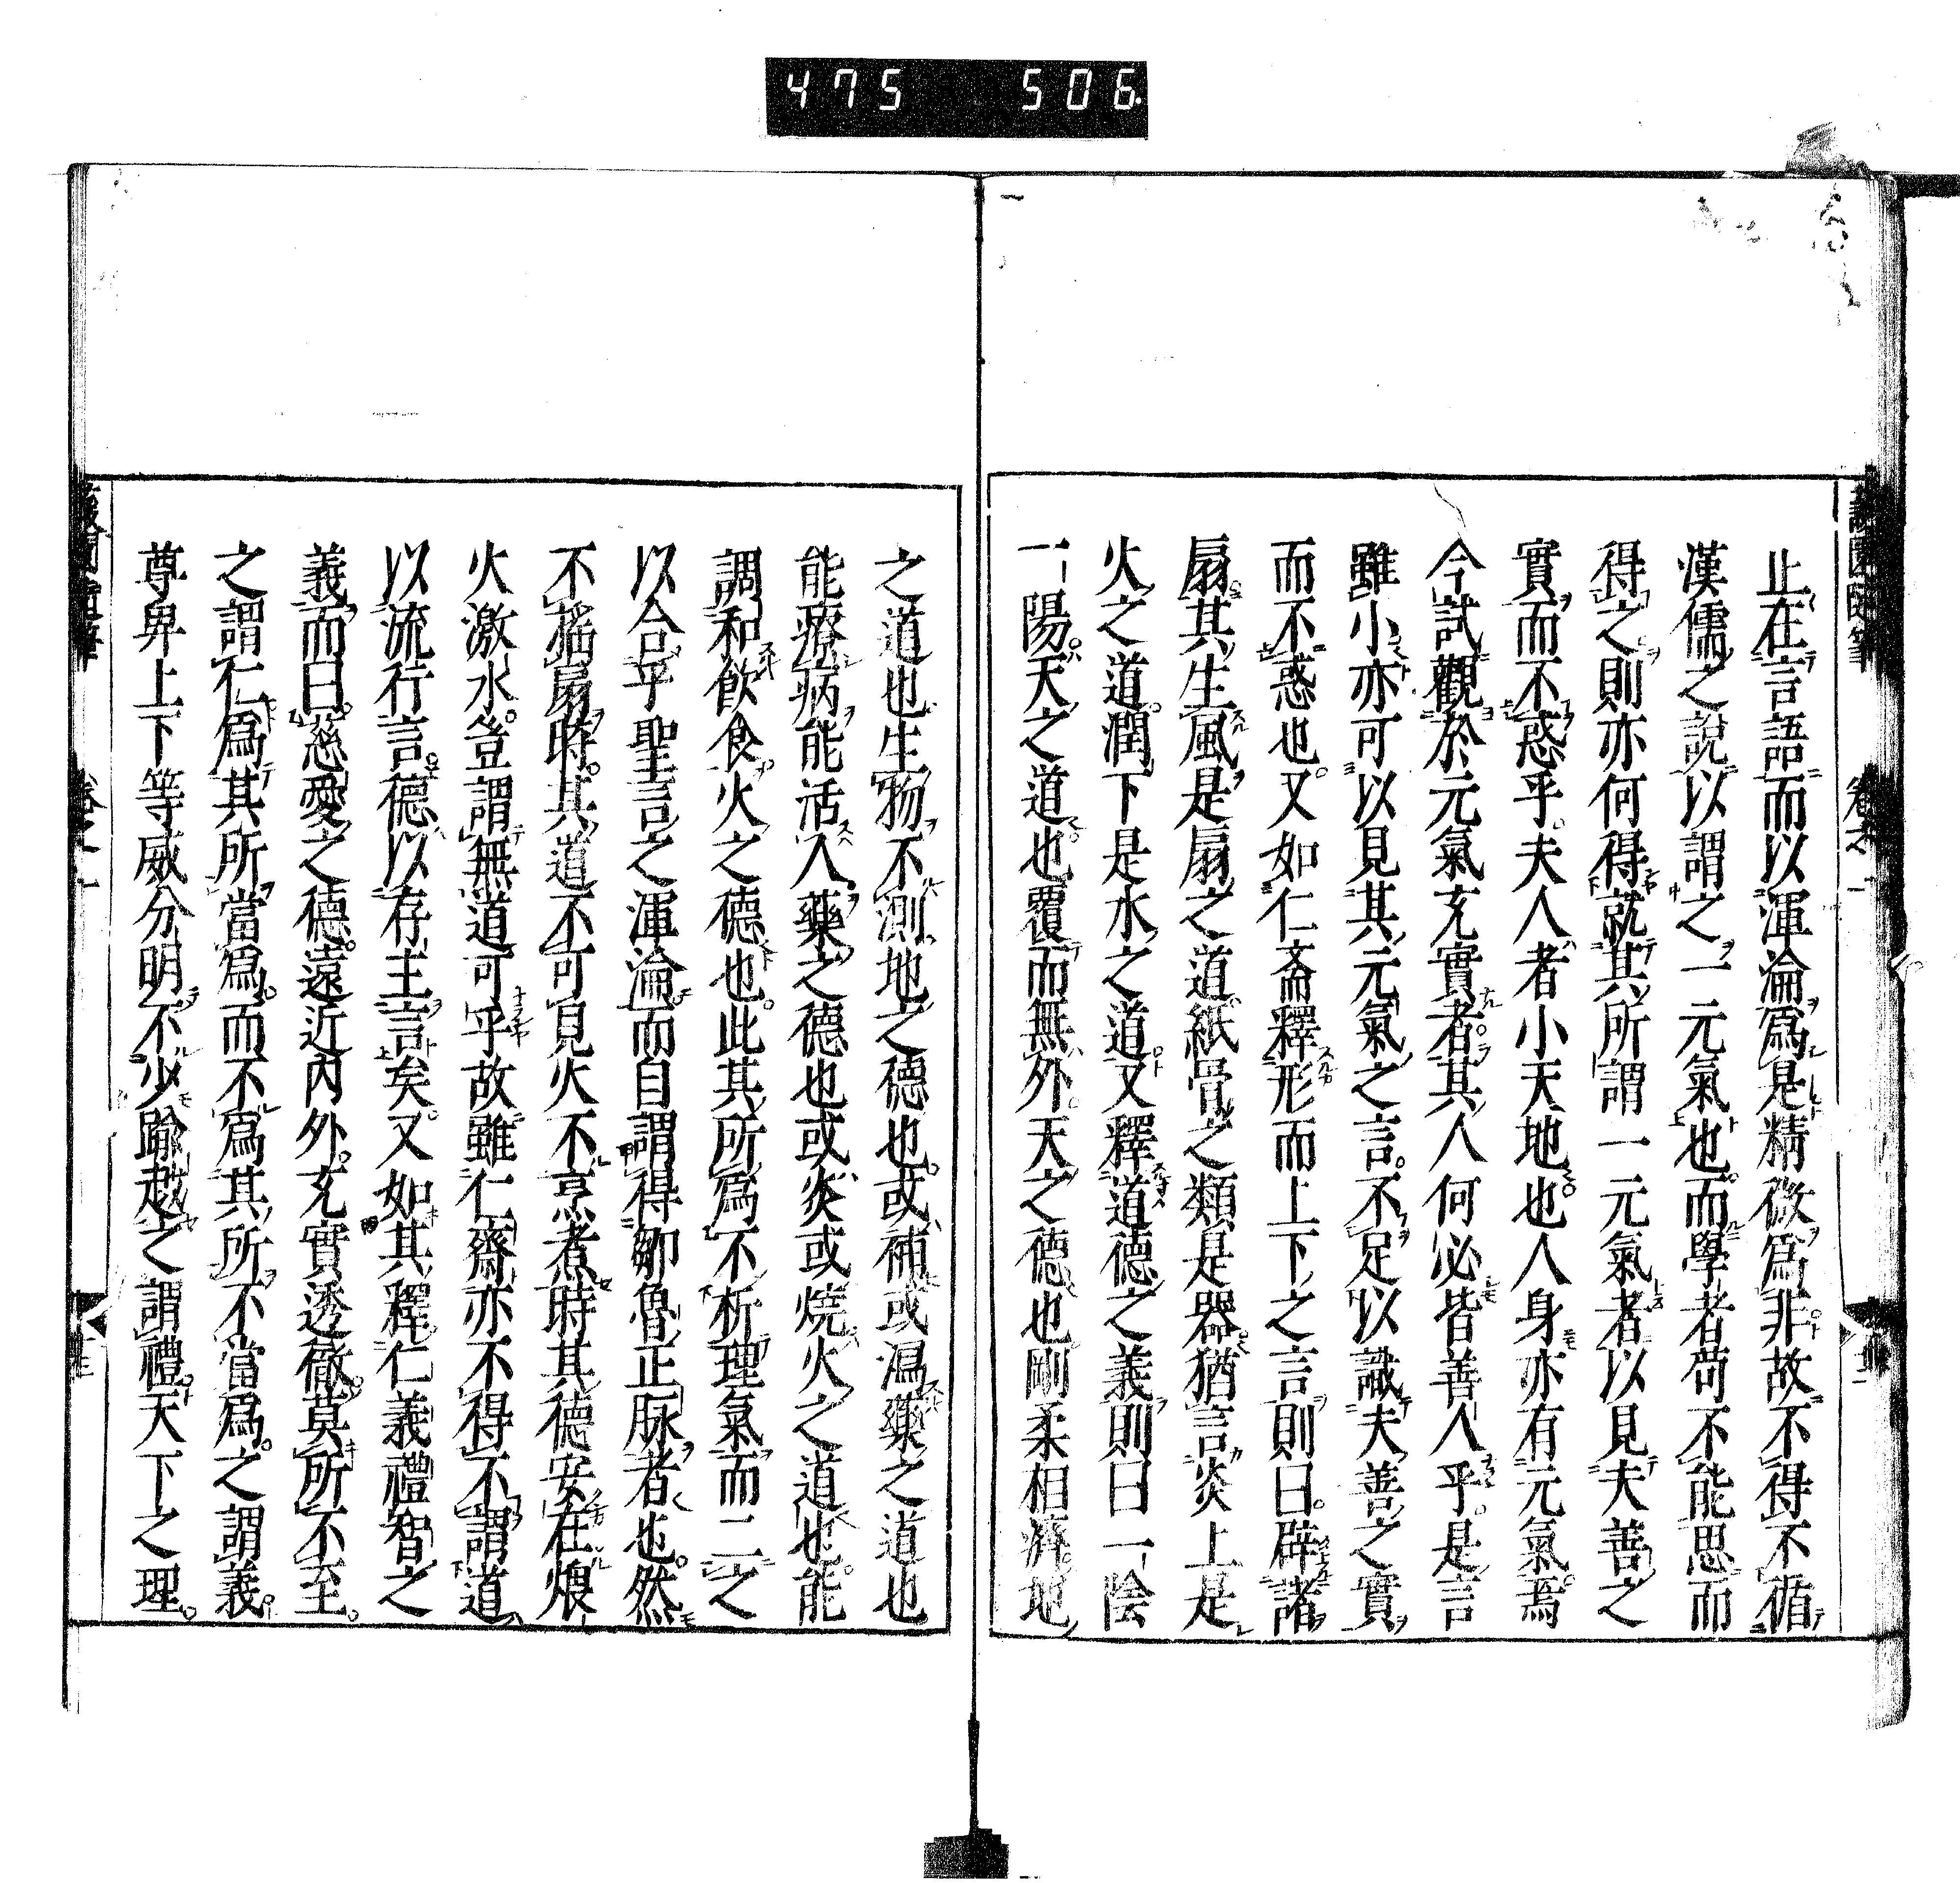 475 506
止在言語而以渾淪爲是精微爲非故不得不循
漢儒之說以謂之一元氣也而學者苟不能思而
得之則亦何得就其所謂一元氣者以見夫善之
實而不惑乎夫人者小天地也人身亦有元氣焉
今試觀於元氣充實者其人何必皆善人乎是言
雖小亦可以見其元氣之言不足以識夫善之實
而不惑也又如仁斎釋形而上下之言則曰辟諸
扇其生風是扇之道紙骨之類是器猶言炎上是
火之道潤下是水之道又釋道德之義則曰一陰
一陽天之道也覆而無外天之德也剛柔相濟地
之道也生物不測地之德也或補或瀉藥之道也
能療病能活人藥之德也或炎或燒火之道也能
調和飲食火之德也此其所爲不析理氣而二之
以合乎聖言之渾淪而自謂得鄒魯正脉者也然
不搖扇時其道不可見火不烹煮時其德安在煨
火激水豈謂無道可乎故雖仁齋亦不得不謂道
以流行言德以存主言矣又如其釋仁義禮智之
義而曰慈愛之德遠近內外充實透徹莫所不至
之謂仁爲其所當爲而不爲其所不當爲之謂義
尊卑上下等威分明不少踰越之謂禮天下之理